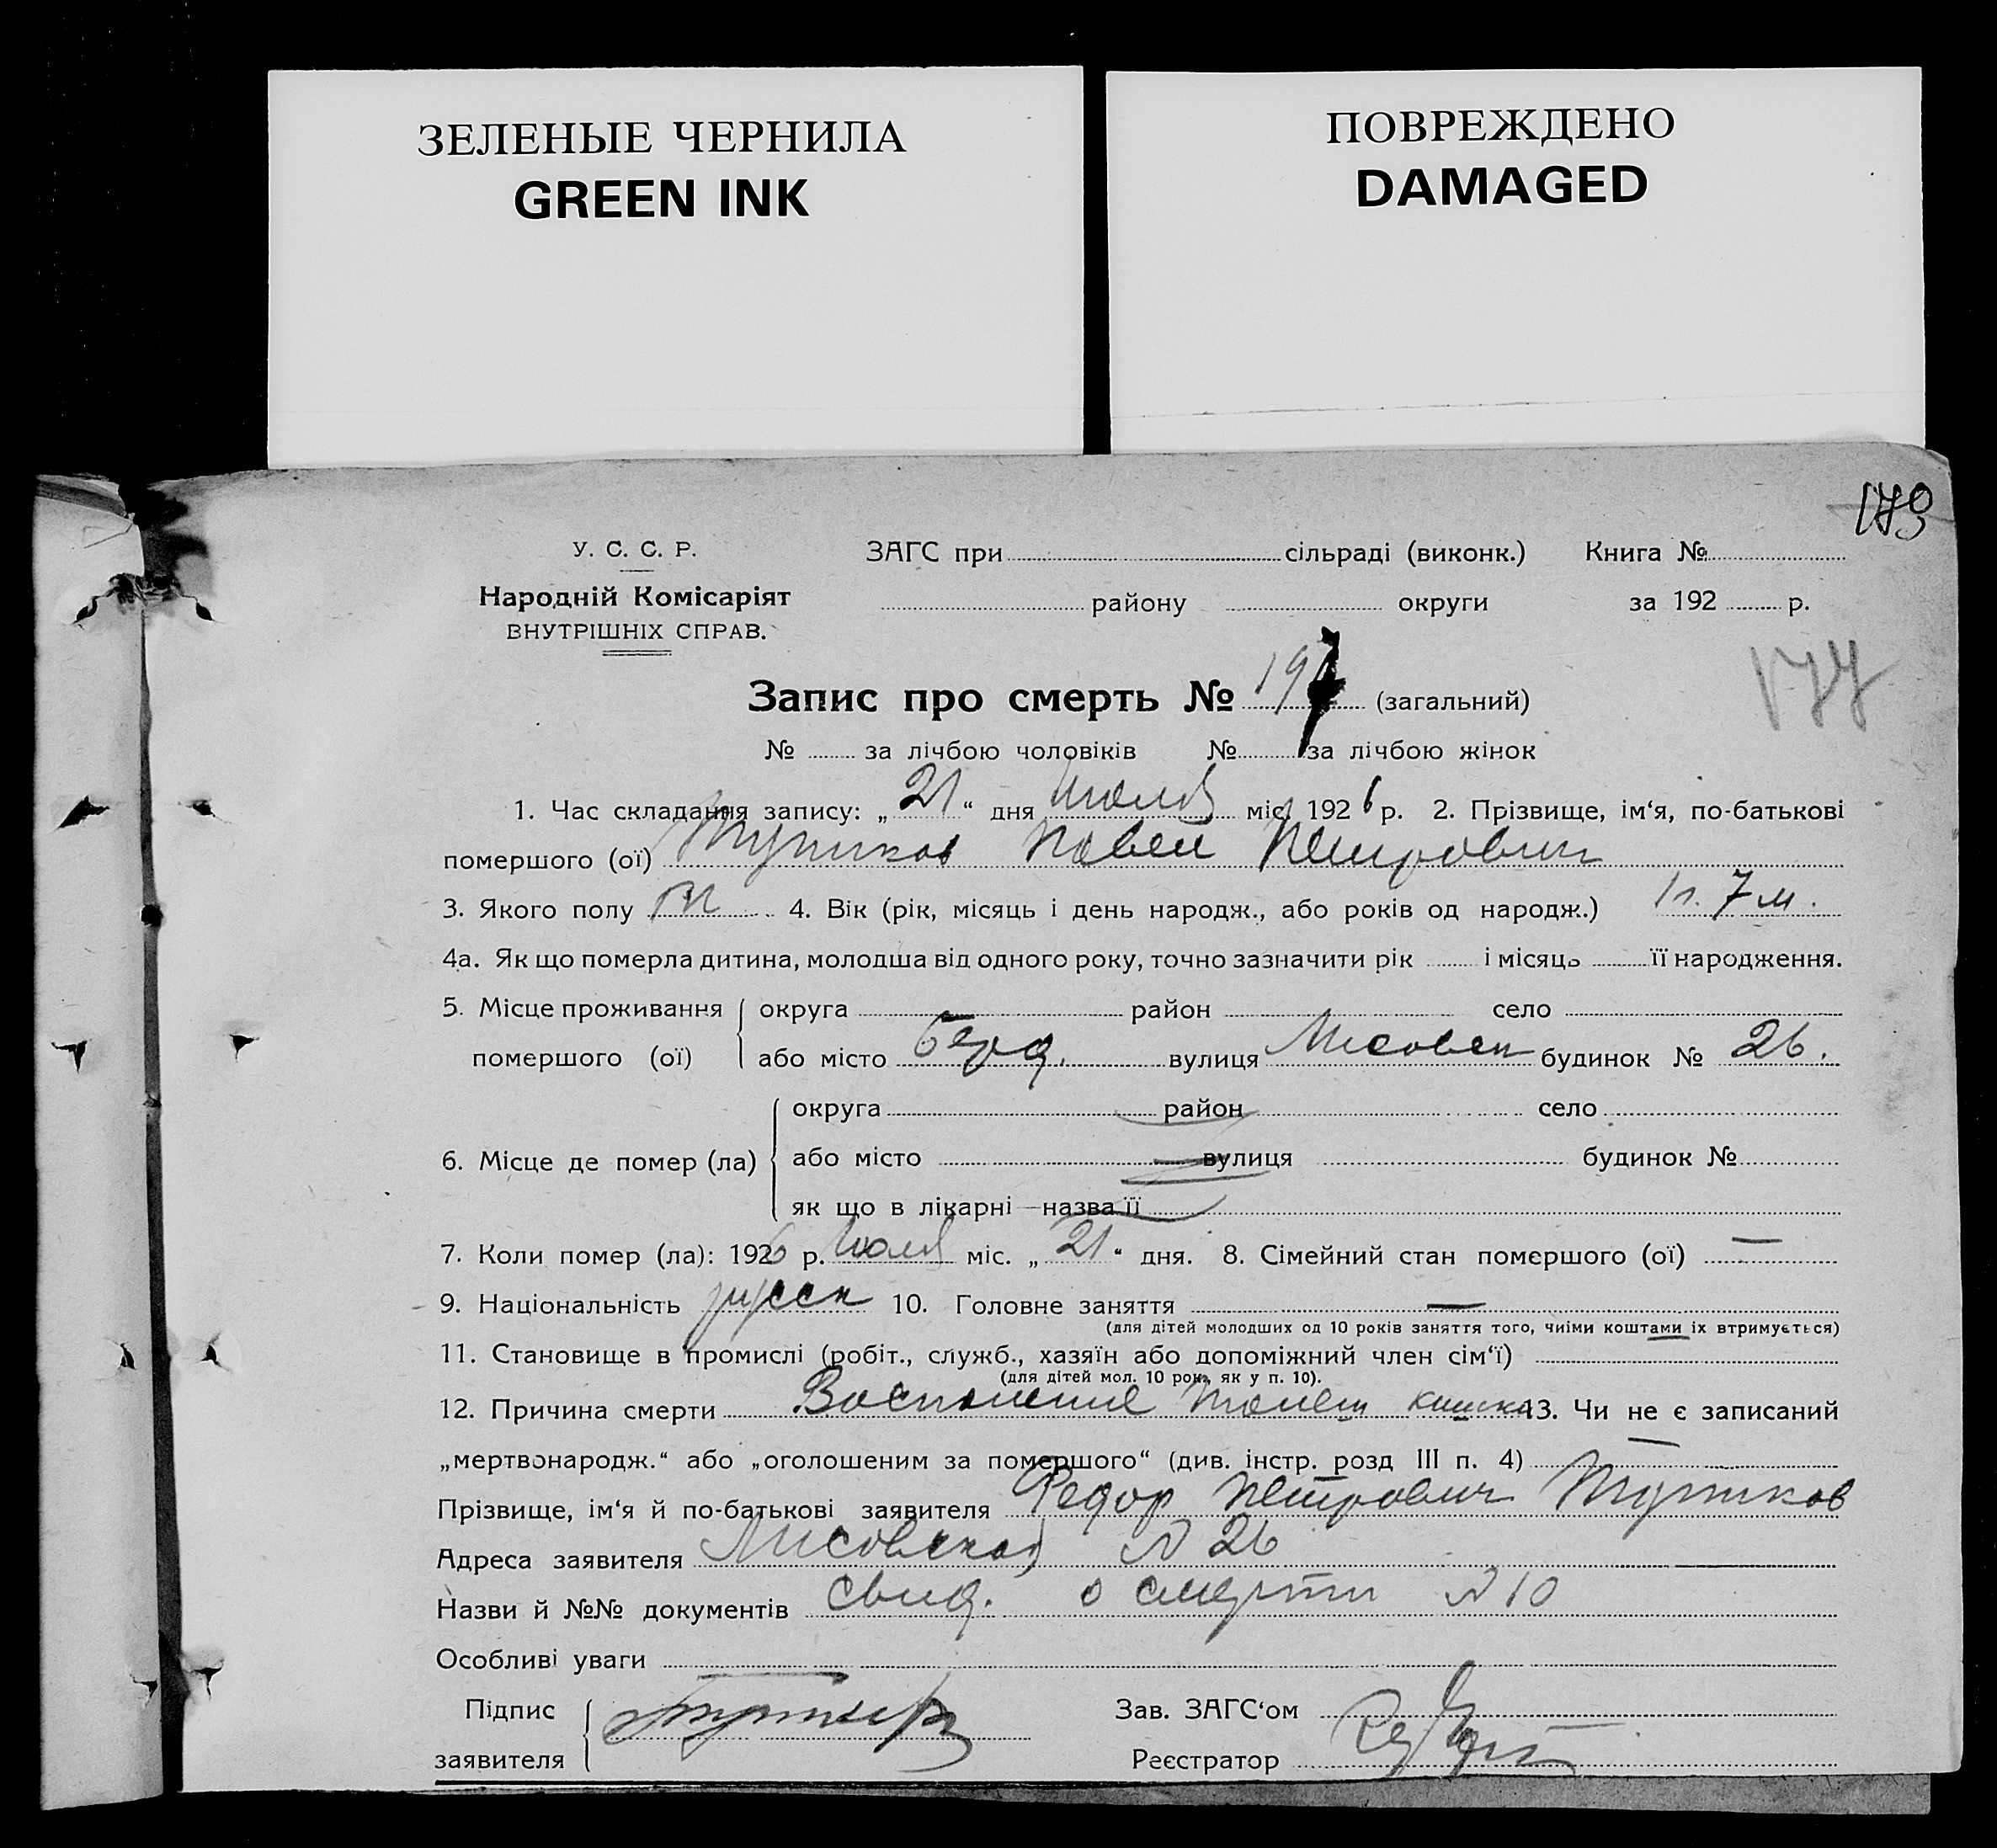 ЗЕЛЕНЫЕ ЧЕРНИЛА
GREEN INK
ПОВРЕЖДЕНО
DAMAGED
У. С. С. Р. ЗАГС при сільраді (виконк.) Книга №
Народній Комісаріят району округи за 192 р.
ВНУТРІШНІХ СПРАВ.
177
Запис про смерть № 197 (загальний)
№ за лічбою чоловіків № за лічбою жінок
1. Час складання запису: „21“ дня Июля міс. 1926 р. 2. Прізвище, ім'я, по-батькові
помершого (ої) Тупиков Павел Петрович
3. Якого полу м 4. Вік (рік, місяць і день народж., або років од народж.) 1 г. 7 м.
4а. Як що померла дитина, молодша від одного року, точно зазначити рік і місяць її народження.
5. Місце проживання округа район село
помершого (ої) або місто Берд. вулиця будинок № 26.
округа район село
6. Місце де помер (ла) або місто вулиця будинок №
як що в лікарні назва її
7. Коли помер (ла): 1926 р. Июля міс. „21“ дня. 8. Сімейний стан помершого (ої) —
9. Національність русск 10. Головне заняття —
(для дітей молодших од 10 років заняття того, чиїми коштами їх втримується)
11. Становище в промислі (робіт., служб., хазяїн або допоміжний член сім'ї)
(для дітей мол. 10 рок. як у п. 10).
12. Причина смерти Воспаление кишок 13. Чи не є записаний
„мертвонародж.“ або „оголошеним за помершого“ (див. інстр. розд III п. 4) —
Прізвище, ім'я й по-батькові заявителя Федор Петрович Тупиков
Адреса заявителя Лисовская № 26
Назви й №№ документів свид. о смерти № 10
Особливі уваги
Підпис Зав. ЗАГС'ом
заявителя Реєстратор